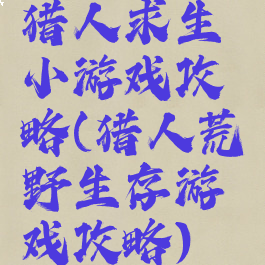 猎人求生
小游戏攻
略(猎人荒
野生存游
戏攻略)